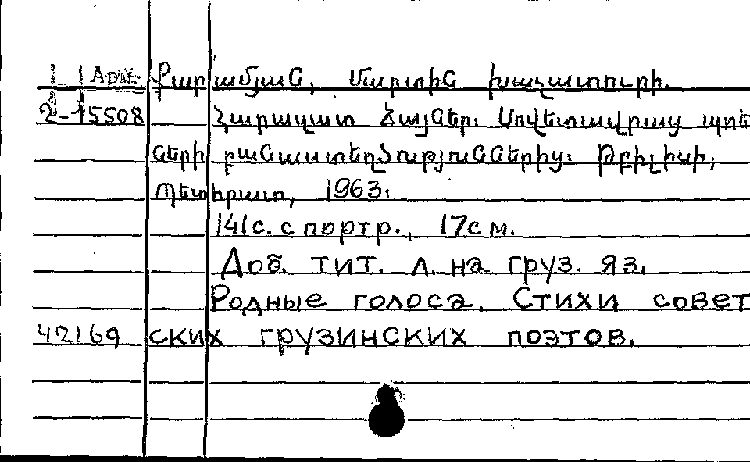 Арм. Քարամյան, Մարտին Խաչատուրի.
2-15508 Հարազատ ձայներ: Սովետավրաց պոետ
ների բանաստեղծություններից: Թբիլիսի,
Պետհրատ, 1963:
141с. с портр., 17см.
Доб. тит. л. на груз. яз.
Родные голоса. Стихи совет
42169 ских грузинских поэтов.